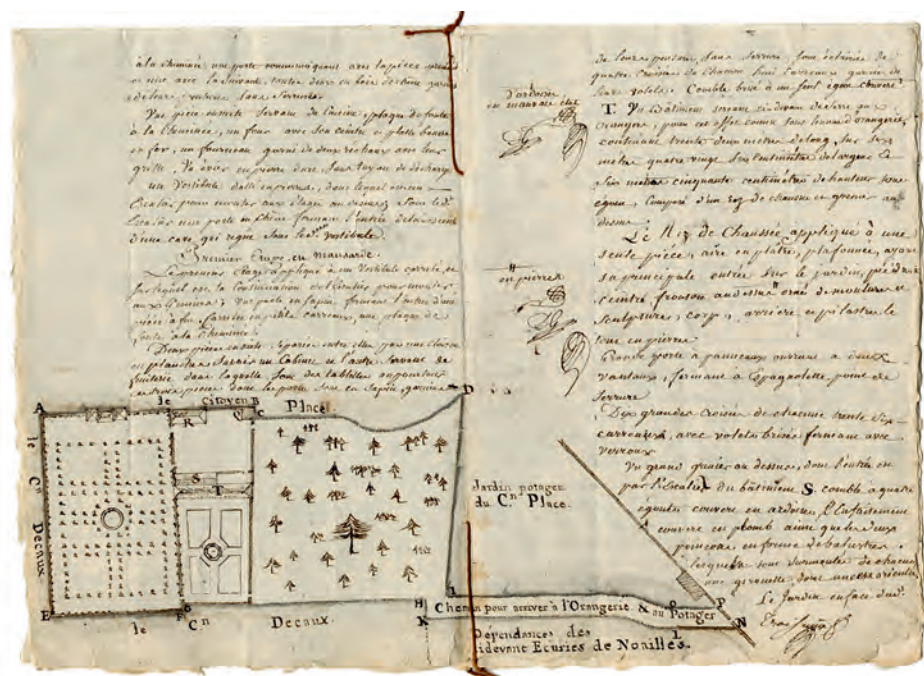 à la cheminée, une porte communiquant avec la pièce
et une avec la suivante, toutes deux en bois de chêne garnies
de leurs ferrures sans serrures.
Une pièce ensuite servant de cuisine, plaque de fonte
à la Cheminée, un four avec son ceintre et platte bande
en fer, un fourneau garni de deux réchaux avec leur
grille, Un évier en pierre dure, Sans tuyau de décharge
un Vestibule dallé en pierre, dans lequel est un
Escalier pour monter aux étages au dessus, Sous le d.
Escalier une porte en Chêne formant l'entrée de la descente
d'une cave qui regne sous le d. vestibule.
Premier Etage en mansarde.
Le premier Etage appliqué à un Vestibule carrelé,
sur lequel est la Continuation de l'Escalier pour monter
aux Greniers; Une porte en Sapin formant l'entrée d'une
pièce à feu, Carrelée en petits carreaux, une plaque de
fonte à la Cheminée.
Deux pièces ensuite, séparées entre elles par une cloison
en planches Servant un Cabinet et l'autre servant de
fruiterie dans laquelle sont des tablettes au pourtour
pièces dont les portes sont en Sapin, garnies
d'ardoise
en mauvais état
en pierres
de leurs pentures, Sans Serrure, sont éclairées de
quatre croisées de chacune huit Carreaux garnies de
leurs volets. Comble brisé à un seul égout couvert
T. Un Bâtiment servant cidevant de Serre aux
Orangers, pour cet effet connu sous le nom d'orangerie,
contenant trente deux mètres de long, Sur Six
mètres quatre vingt Six centimètres de largeur &
Six mètres cinquante centimètres de hauteur sous
égout, Composé d'un rez de chaussée et grenier au
dessus.
Le Rez de Chaussée appliqué à une
seule pièce, aire en plâtre, plafonnée, ayant
sa principale entrée sur le jardin, piédroits
ceintré, fronton au dessus orné de moulures &
Sculptures, corps, arrière corps pilastre le
tout en pierre
Grande porte à panneaux ouvrant à deux
vantaux, fermant à Espagnolette, point de
Serrure
Dix grandes Croisées de chacune trente Six
carreaux, avec volets brisés fermant avec
verroux
Un grand grenier au dessus, dont l'entrée est
par l'Escalier du bâtiment S. comble à quatre
égouts couvert en ardoises, l'Enfaîtement
couvert en plomb ainsi que les deux
poinçons en forme de balustres,
lesquels sont surmontés de chacun
une girouette, dont une est
Le Jardin en face dud.
A le Citoyen B Place D
R V C
le Cn Decaux
S
T
Jardin potager
du Cn Place.
I
E F G H
le Cn Decaux K
Chemin pour arriver à l'Orangerie & au Potager
O P
L N
Dépendances des
cidevant Ecuries de Noailles.